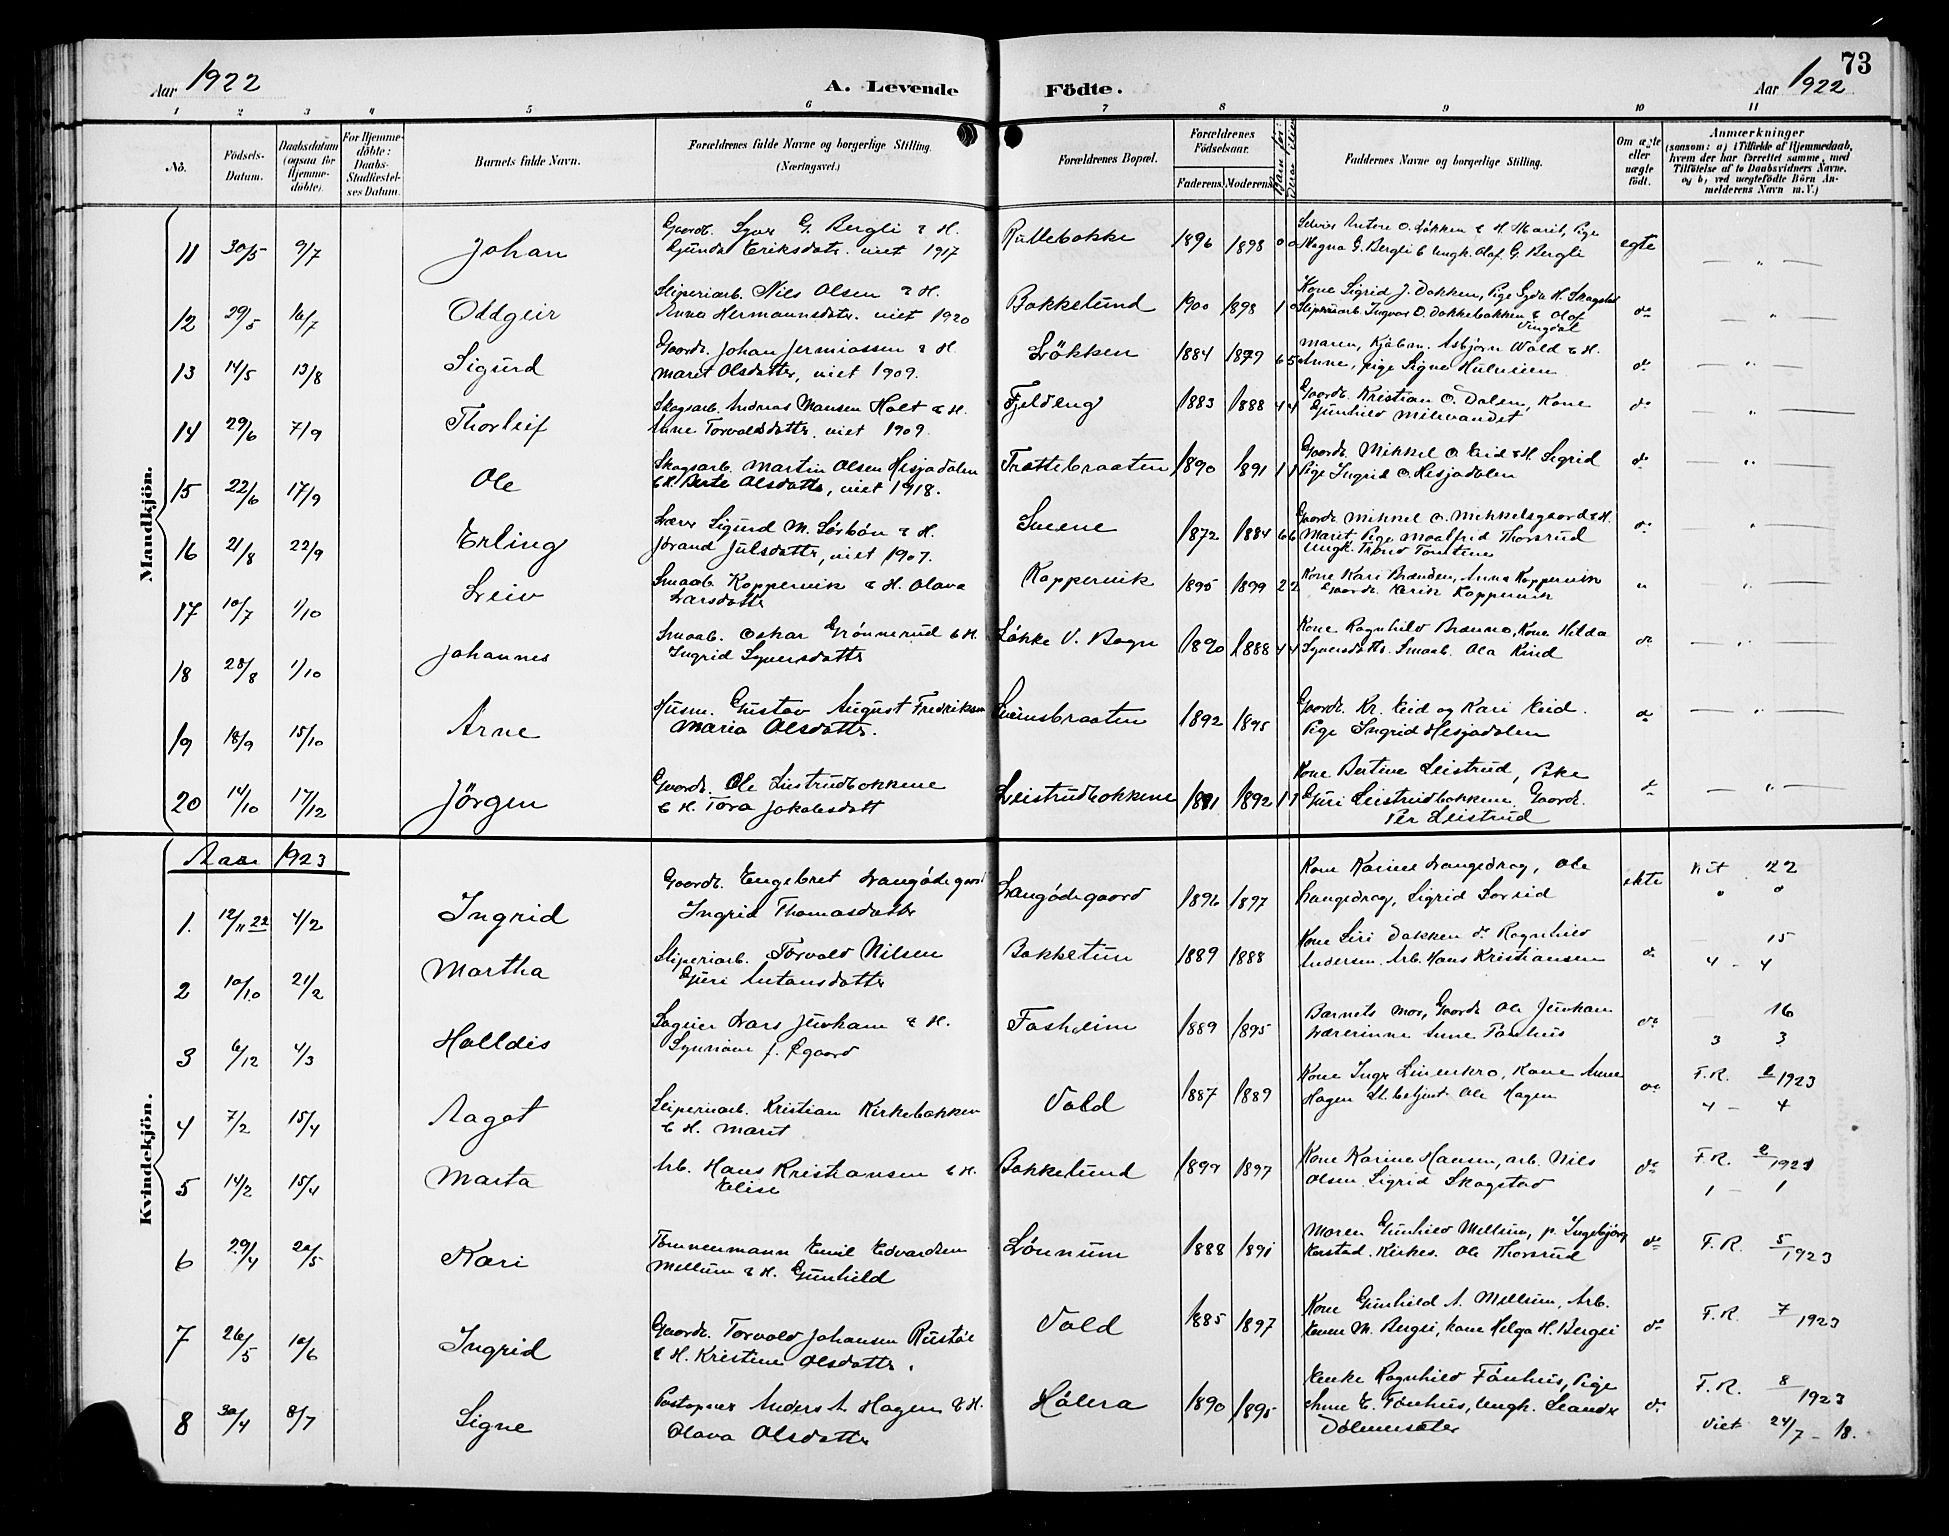 Aar 1922
A. Levende
Födte.
73
Aar 1922
1 2 3 4 5 6 7 8 9 10 11
No.
Födsels-Datum.
Daabsdatum (ogsaa for Hjemmedöbte).
For Hjemmedöbte: Daabs-Stadfæstelses Datum.
Barnets fulde Navn.
Forældrenes fulde Navne og borgerlige Stilling. (Næringsvei.)
Forældrenes Bopæl.
Forældrenes Födselsaar.
Faderens. Moderens.
Faddernes Navne og borgerlige Stilling.
Om ægte eller uægte födt.
Anmærkninger
(saasom: a) i Tilfælde af Hjemmedaab, hvem der har forrettet samme, med Tilföielse af to Daabsvidners Navne, og b, ved uægtefödte Börn Anmelderens Navn m. V.)
Mandkjön.
11 30/5 9/7 Johan Gaardb. Syver G. Bergli & H. Gunda Eriksdatr. viet 1917 Rullebakke 1896 1898 0 0 Antere O. Løkken & H. Marit, Pige Magna G. Bergli & Ungk. Olaf G. Bergli egte — " —
12 29/5 16/7 Oddgeir Sliperiarb. Nils Olsen & H. Anna Hermannsdatr. viet 1920 Bakkelund 1900 1898 1 0 Kone Sigrid J. Dokken, Pige Gyda H. Skagstad Sliperiarb. Ingvar O. Dokkebakken & Olaf Vingdal do — " —
13 14/5 13/8 Sigurd Gaardb. Johan Jermiassen & H. Marit Olsdatter, viet 1909. Løkken 1884 1879 6 5 Maren, Kjøbm. Asbjørn Wold & H. Anne, pige Signe do — " —
14 29/6 7/9 Thorleif Skogsarb. Andreas Hansen Holt & H. Anne Torvaldsdattr. viet 1909. Fjeldeng 1883 1888 4 4 Gaardb. Kristian O. Dalen, Kone Gunhild Milevandet do — " —
15 22/6 17/9 Ole Skogsarb. Martin Olsen Hesjadalen & H. Berte Olsdattr, viet 1918. Trøttebraaten 1890 1891 1 1 Gaardb. Mikkel O. Eid & H. Sigrid Pige Ingrid O. Hesjadalen do — " —
16 21/8 22/9 Erling Lærer Sigurd M. Sørbøn & H. Jørand Julsdattr, viet 1907. Sveene 1872 1884 6 6 Gaardb. Mikkel O. Mikkelsgaard & H. Marit, Pige Maalfrid Thorsrud Ungk. Trond do — " —
17 10/7 1/10 Leiv Smaab. Koppervik & H. Olava Larsdattr Koppervik 1895 1899 2 2 Kone Kari Brænden, Anna Koppervik Gaardb. Erik Koppervik " "
18 28/8 1/10 Johannes Smaab. Oskar Grønnerud & H. Ingrid Syversdattr Løkke V. Bagn 1890 1888 4 4 Kone Ragnhild Brænno, Kone Hilda Syversdattr. Smaab. Ola Rind do — " —
19 18/9 15/10 Arne Husm. Gustav August Fredriksen Maria Olsdattr. Sveinsbraaten 1892 1895 Gaardb. Kr. Eid og Kari Eid. Pige Ingrid Hesjadalen do — " —
20 14/10 17/12 Jörgen Gaardb. Ole Leistrudbakkene & H. Tora Jakobsdatt Leistrudbakkene 1881 1892 1 1 Kone Bertine Leistrud, Pike Guri Leistrudbakkene. Gaardb. Per Leistrud do — " —
Aar 1923
Kvindekjön.
1. 12/11 22 4/2 Ingrid Gaardb. Engebret Langødegaard Ingrid Thomasdatter Langødegaard 1896 1897 Kone Karine Langedrag, Ole Langedrag, Sigrid Sørlid ekte Viet 22 0 0
2 10/10 21/2 Martha Sliperiarb. Torvald Nilsen Guri Antonsdattr Bakketun 1889 1888 Kone Siri Dokken do Ragnhild Andersen. Arb. Hans Kristiansen do — 15 4 – 4
3 6/12 4/3 Halldis Lars Juvkam & H. Synnøve f. Øgaard Fosheim 1889 1895 Barnets mor, Gaardb. Ole Juvkam Lærerinne Anne Fønhus do — 16 3 3
4 7/2 15/4 Aagot Sliperiarb. Kristian Kirkebakken & H. Marit Vold 1887 1889 Kone Inga Linenkro, Kone Anne Hagen St. betjent Ole Hagen do F.R. 2/1923 4 – 4
5 14/2 15/4 Marta Arb. Hans Kristiansen & H. Elise Bakkelund 1897 Kone Karine Hansen, arb. Nils Olsen, Sigrid Skagstad do F.R. 2/1921 1 – 1
6 29/4 20/5 Kari Tømmermann Emil Edvardsen Mellum & H. Gunhild Lønnum 1888 1891 Maren Gunhild Mellum, p. Ingebjørg Kirkes. Ole Thorsrud do F.R. 5/1923
7 26/5 10/6 Ingrid Gaardb. Torvald Johansen Rustøe & H. Kristine Olsdattr. Vold 1885 1897 Kone Gunhild A. Mellum, Arb. Even M. Berge, kone Helga H. Berge do F.R. 7/1923
8 30/4 8/7 Signe Postopner Anders A. Hagen & H. Olava Olsdattr Hølera 1890 1895 Enke Ragnhild Fønhus, Pige Anne E. Fønhus, Ungk. Leander do F.R. 8/1923 Viet 24/7 – 18.